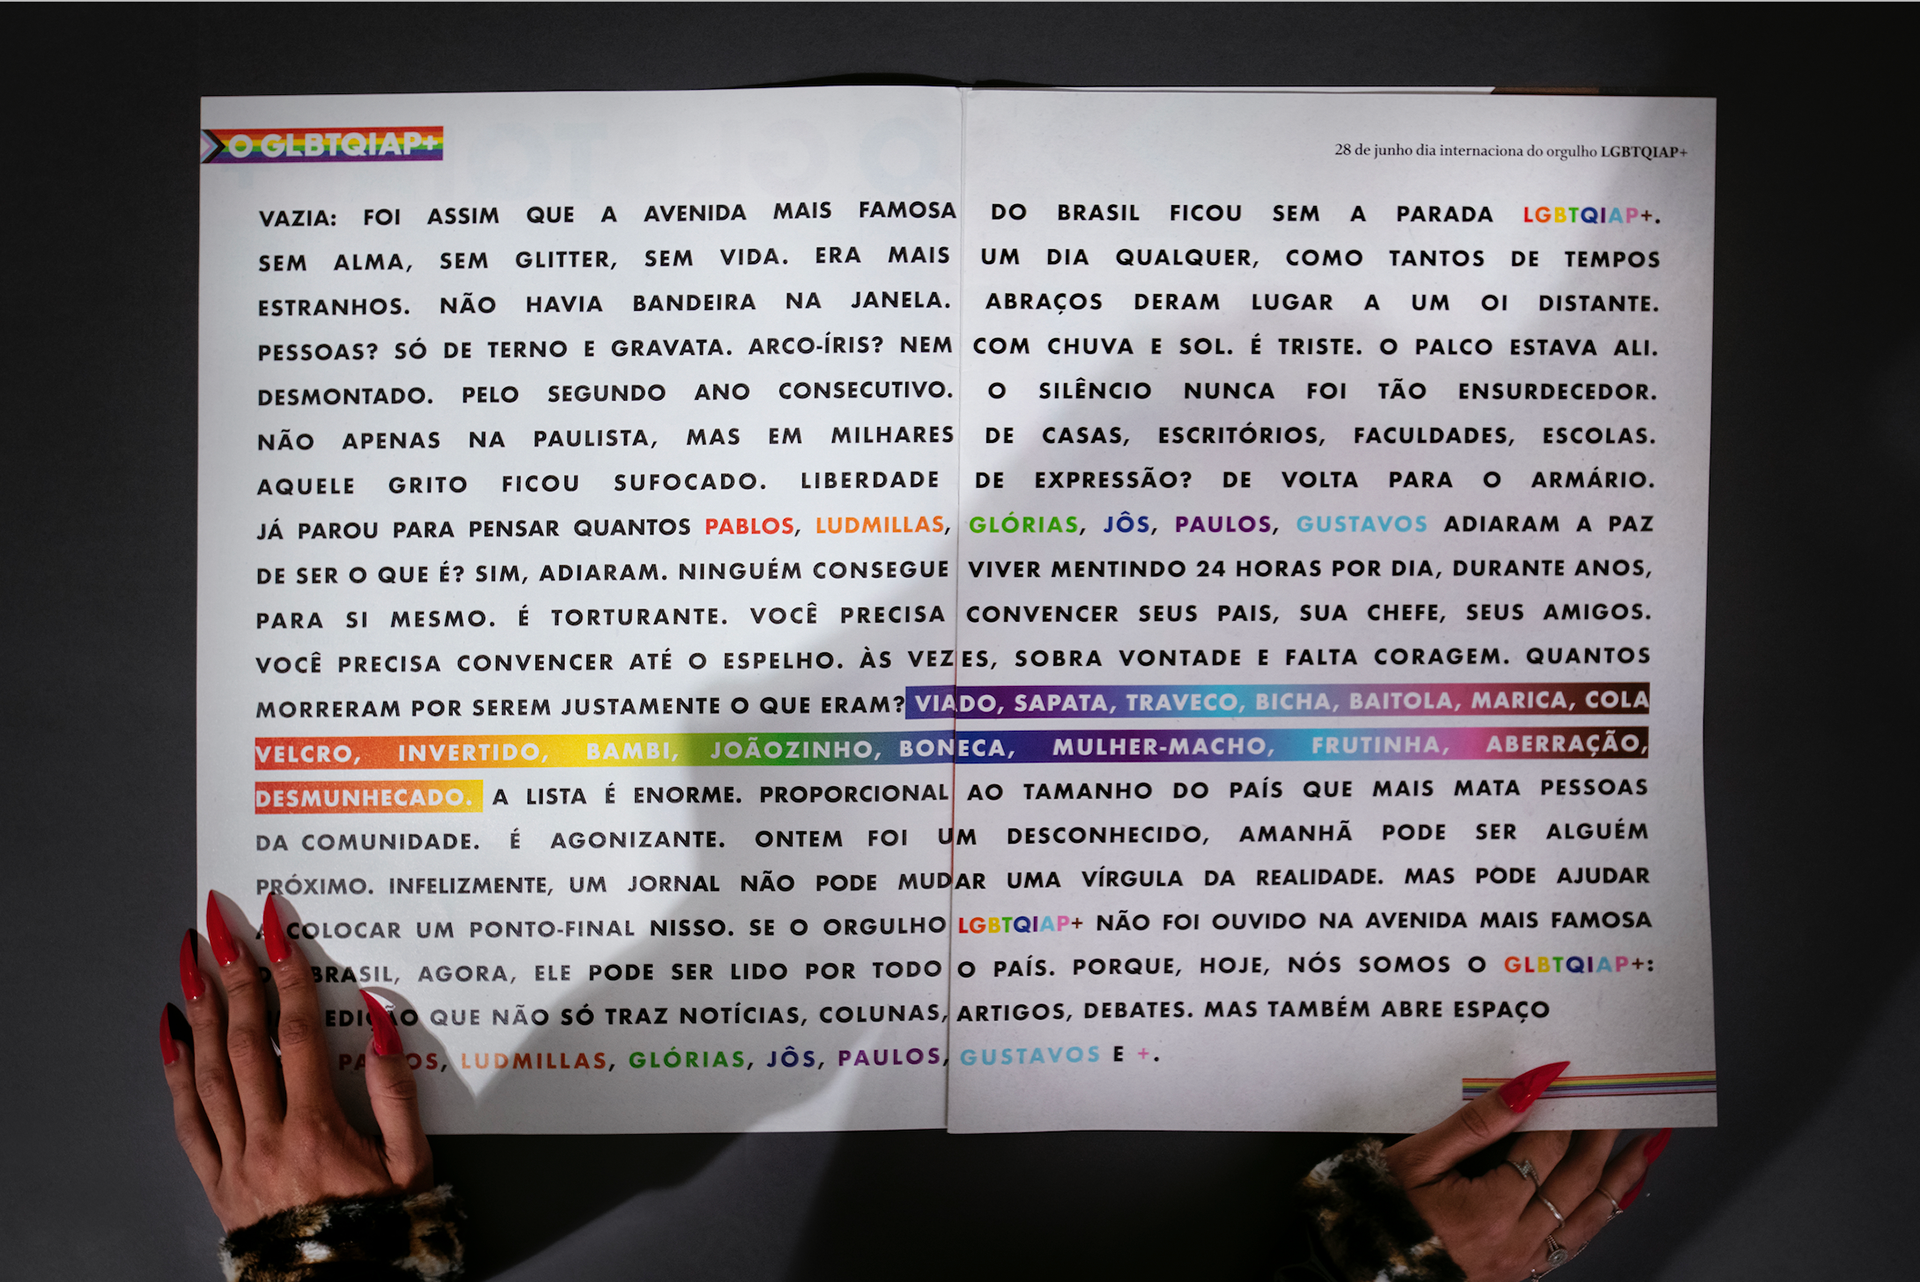 O GLBTQIAP+
28 de junho dia internaciona do orgulho LGBTQIAP+
VAZIA: FOI ASSIM QUE A AVENIDA MAIS FAMOSA DO BRASIL FICOU SEM A PARADA LGBTQIAP+.
SEM ALMA, SEM GLITTER, SEM VIDA. ERA MAIS UM DIA QUALQUER, COMO TANTOS DE TEMPOS
ESTRANHOS. NÃO HAVIA BANDEIRA NA JANELA. ABRAÇOS DERAM LUGAR A UM OI DISTANTE.
PESSOAS? SÓ DE TERNO E GRAVATA. ARCO-ÍRIS? NEM COM CHUVA E SOL. É TRISTE. O PALCO ESTAVA ALI.
DESMONTADO. PELO SEGUNDO ANO CONSECUTIVO. O SILÊNCIO NUNCA FOI TÃO ENSURDECEDOR.
NÃO APENAS NA PAULISTA, MAS EM MILHARES DE CASAS, ESCRITÓRIOS, FACULDADES, ESCOLAS.
AQUELE GRITO FICOU SUFOCADO. LIBERDADE DE EXPRESSÃO? DE VOLTA PARA O ARMÁRIO.
JÁ PAROU PARA PENSAR QUANTOS PABLOS, LUDMILLAS, GLÓRIAS, JÔS, PAULOS, GUSTAVOS ADIARAM A PAZ
DE SER O QUE É? SIM, ADIARAM. NINGUÉM CONSEGUE VIVER MENTINDO 24 HORAS POR DIA, DURANTE ANOS,
PARA SI MESMO. É TORTURANTE. VOCÊ PRECISA CONVENCER SEUS PAIS, SUA CHEFE, SEUS AMIGOS.
VOCÊ PRECISA CONVENCER ATÉ O ESPELHO. ÀS VEZES, SOBRA VONTADE E FALTA CORAGEM. QUANTOS
MORRERAM POR SEREM JUSTAMENTE O QUE ERAM? VIADO, SAPATA, TRAVECO, BICHA, BAITOLA, MARICA, COLA
VELCRO, INVERTIDO, BAMBI, JOÃOZINHO, BONECA, MULHER-MACHO, FRUTINHA, ABERRAÇÃO,
DESMUNHECADO. A LISTA É ENORME. PROPORCIONAL AO TAMANHO DO PAÍS QUE MAIS MATA PESSOAS
DA COMUNIDADE. É AGONIZANTE. ONTEM FOI UM DESCONHECIDO, AMANHÃ PODE SER ALGUÉM
PRÓXIMO. INFELIZMENTE, UM JORNAL NÃO PODE MUDAR UMA VÍRGULA DA REALIDADE. MAS PODE AJUDAR
A COLOCAR UM PONTO-FINAL NISSO. SE O ORGULHO LGBTQIAP+ NÃO FOI OUVIDO NA AVENIDA MAIS FAMOSA
BRASIL, AGORA, ELE PODE SER LIDO POR TODO O PAÍS. PORQUE, HOJE, NÓS SOMOS O GLBTQIAP+:
EDIÇÃO QUE NÃO SÓ TRAZ NOTÍCIAS, COLUNAS, ARTIGOS, DEBATES. MAS TAMBÉM ABRE ESPAÇO
PABLOS, LUDMILLAS, GLÓRIAS, JÔS, PAULOS, GUSTAVOS E +.